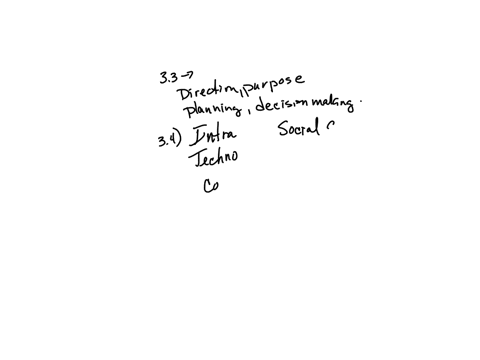 3.3 →
Direction, purpose
planning, decision making.
3.4) Intra Social (
Techno
Co